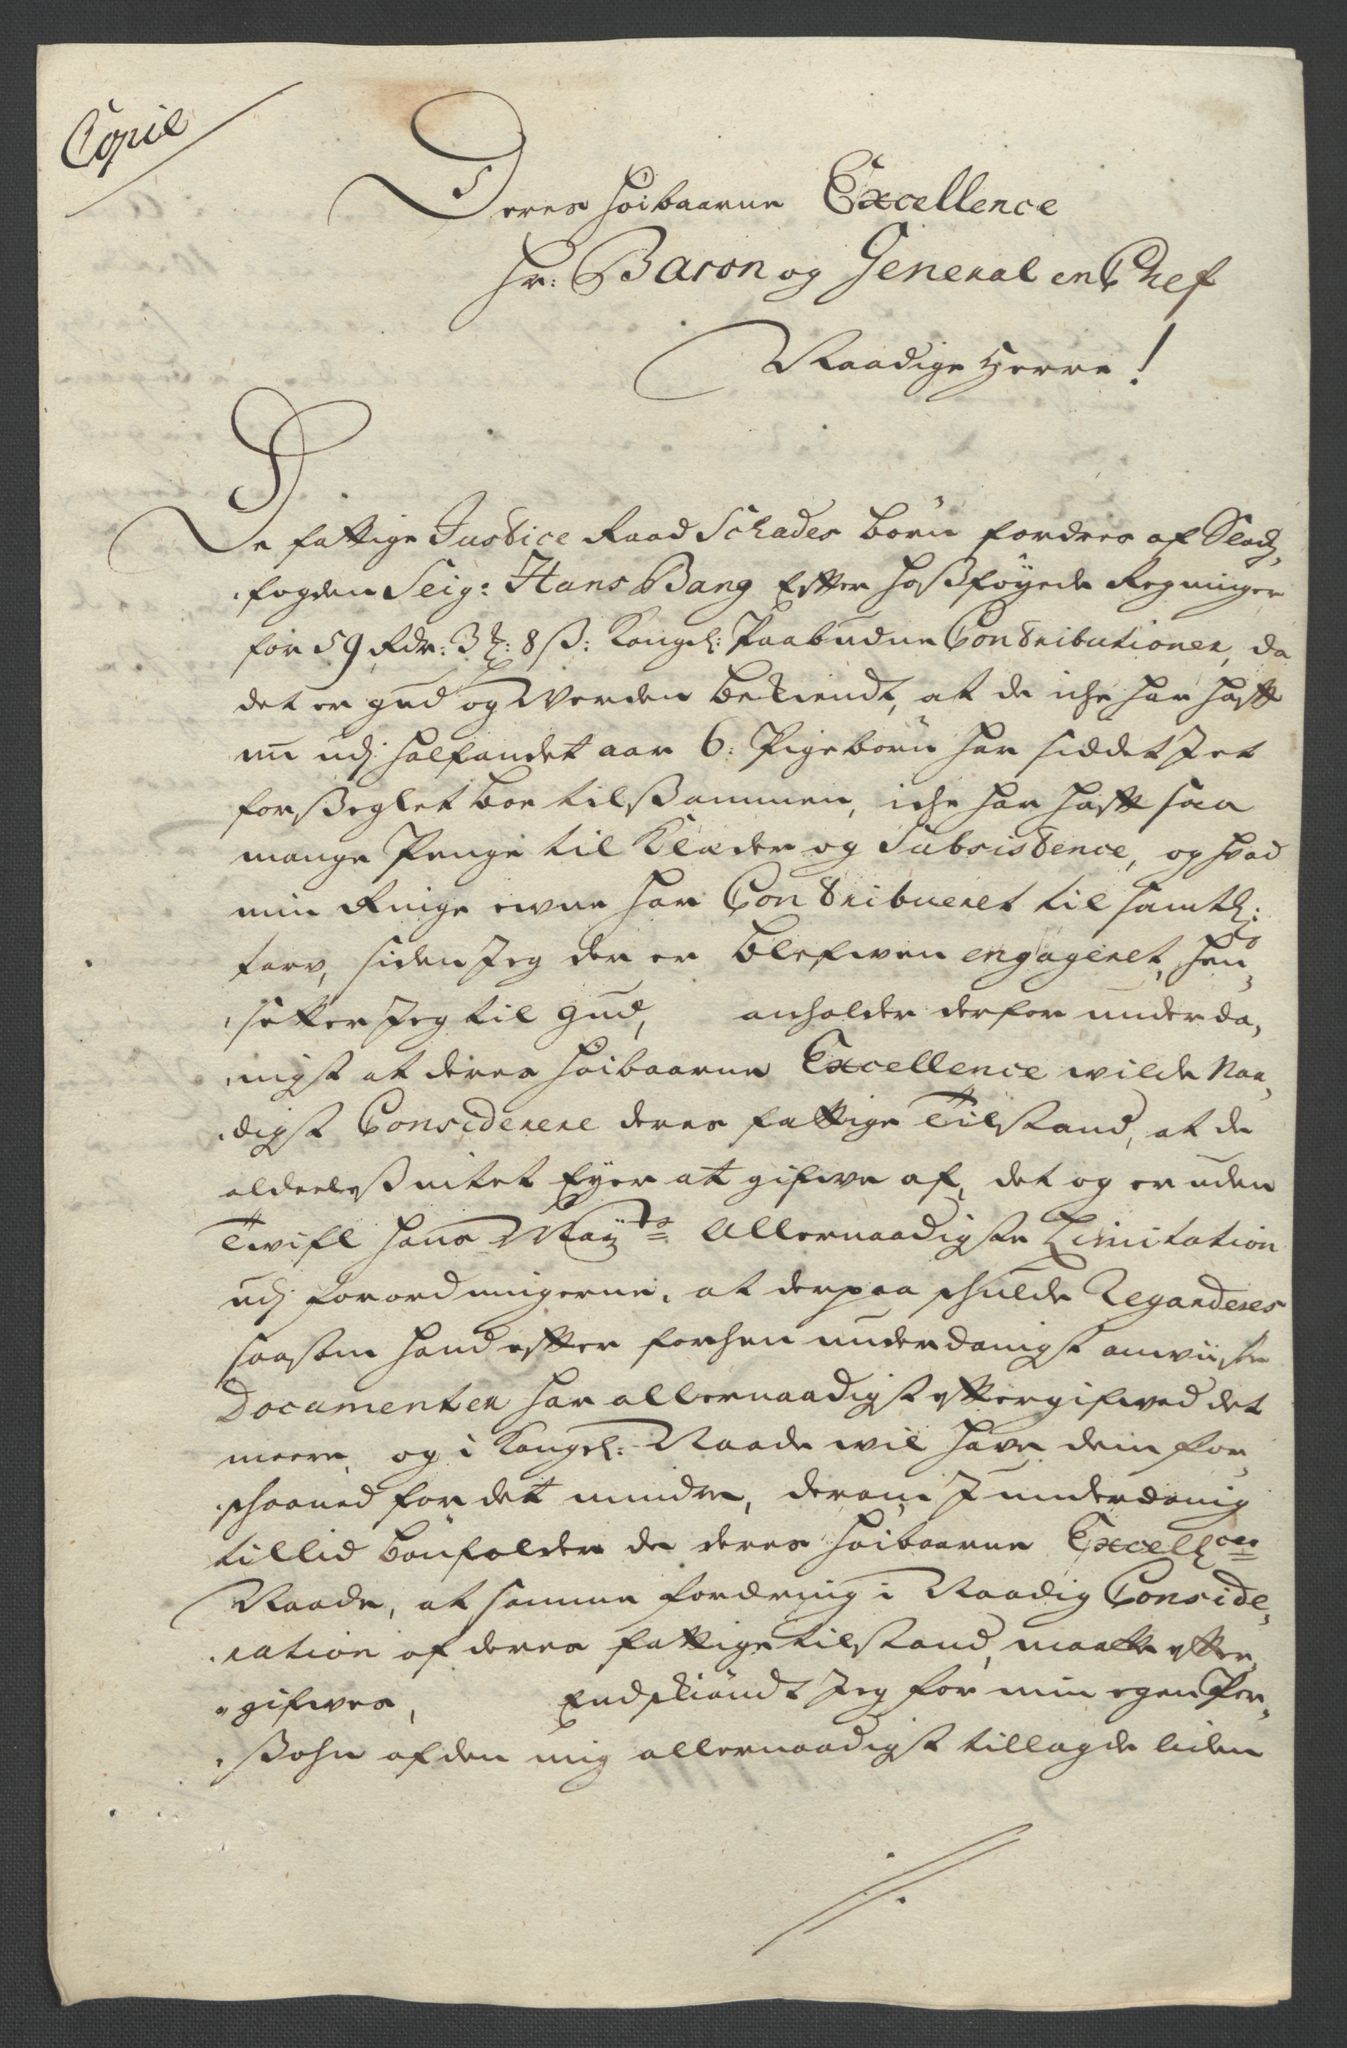 Copie
Deres Höibaarne Excellence
Hr: Baron og General en Chef
Naadige Herre!
De fattige Justice Raad Schades börn fordres af Stads,
fogden Seig: Hans Bang Efter hosföyede Regninger
for 59 Rdr: 3 : 8 ß: Kongel: Paabudne Contributioner, da
det er gud og Verden bekiendt, at de iche har haft
nu udj halfandet aar 6: Pigebörn har siddet I et
forseglet boe tilsammen, iche har haft saa
mange Penge til Klæder og Subsistence, og hvad
min Ringe evne har Contribueret til samtl:
tarv, siden Jeg der er blefwen engageret, hen,
,setter Jeg til gud, anholder derfor underda,
,nigst at deres Höibaarne Excellence wilde Naa,
,digst Considerere deres fattige Tilstand, at de
aldeeles intet Eyer at gifwe af, det og er uden
Twifl hans Mayts Allernaadigste Limitation
udj forordningerne, at derpaa skulde Regarderes
saasom hand efter forhen underdanigst anviiste
Documenter har allernaadigst eftergifwed det
meere, og i Kongel: Naade wil have dem for,
,skaaned for det mindre, deram I underdanig
tillid bönfalder de deres Höibaarne Excellces
Naade, at samme fordring i Naadig Conside,
,ration af deres fattige tilstand, maatte efter,
,gifwes, Endskiöndt Jeg for min egen Per,
,sohn af den mig allernaadigst tillagde liden